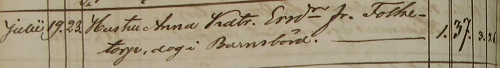 Julii 19. 23. Hustru Anna Katr. Ersdr fr. Tolke-
torp, dog i Barnsbörd. 1. 37. 3.